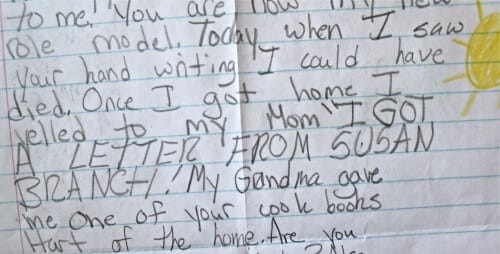 to me! You are now my new
role model. Today when I saw
your hand writing I could have
died. Once I got home I
yelled to my Mom "I GOT
A LETTER FROM SUSAN
BRANCH! My Grandma gave
me one of your cook books
Hart of the home. Are you